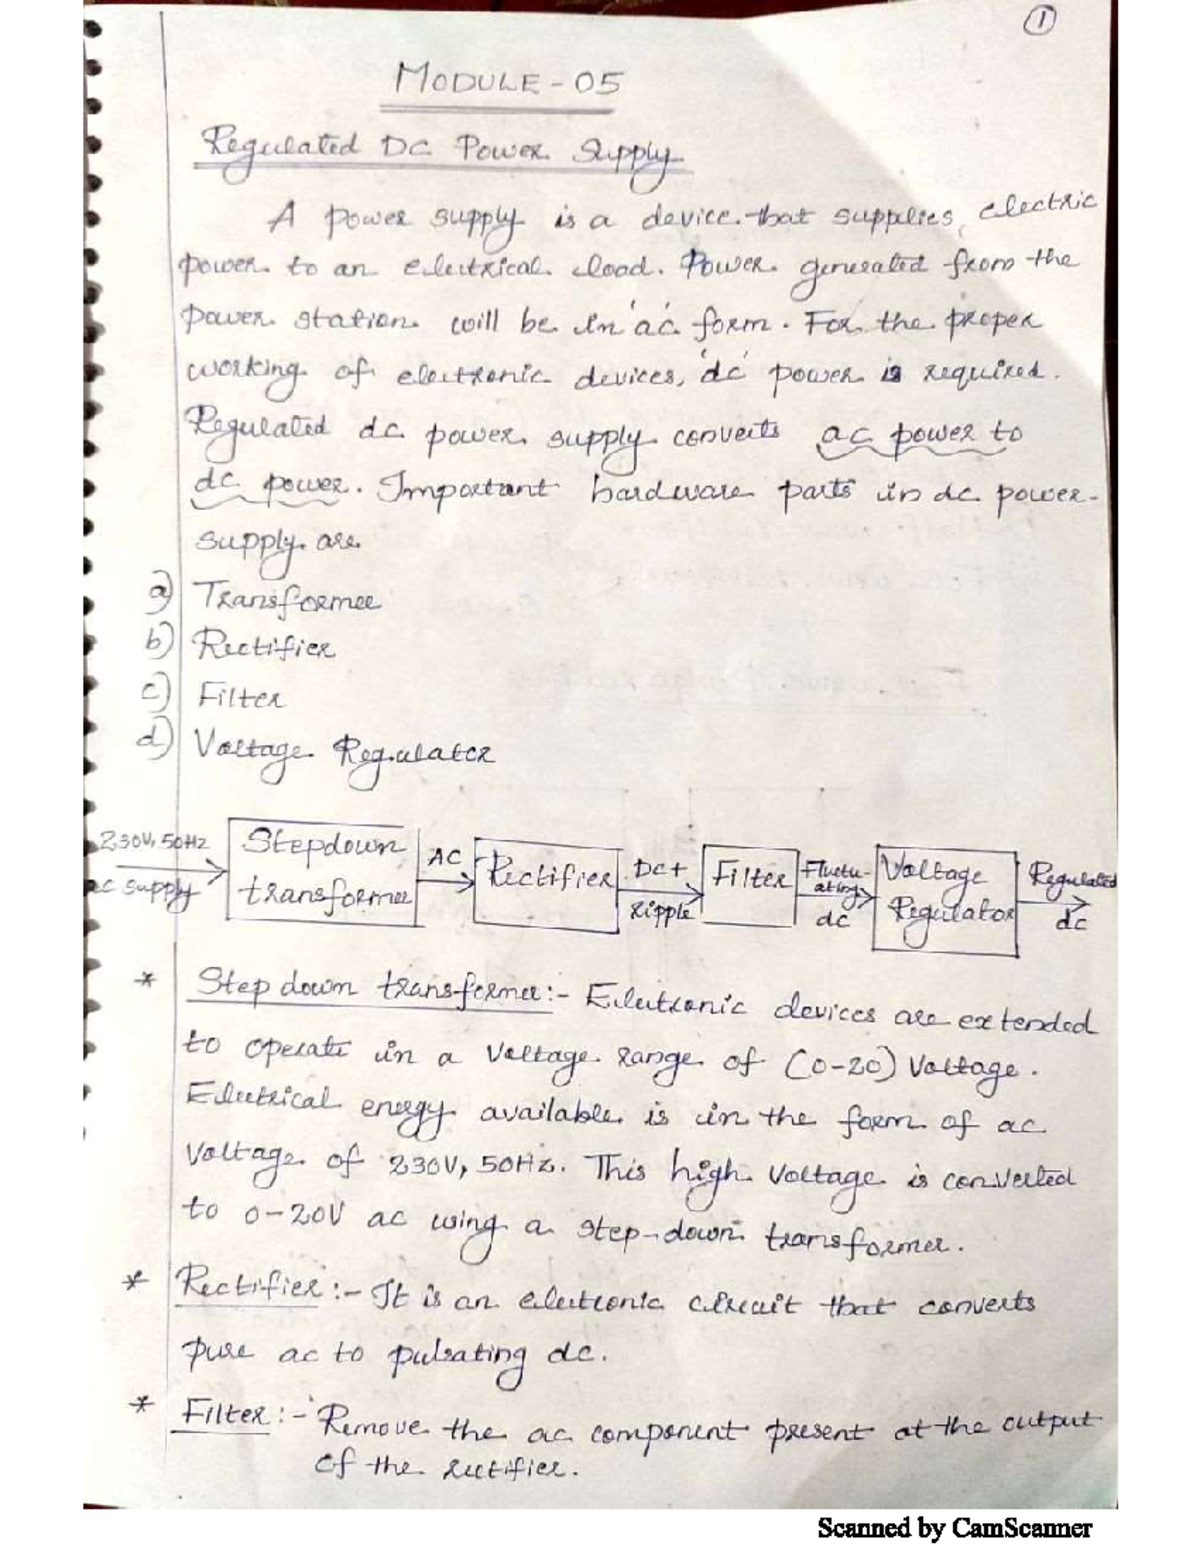 1
MODULE-05
Regulated DC Power Supply
A power supply is a device that supplies electric
power to an electrical load. Power generated from the
power station will be in 'ac' form. For the proper
working of electronic devices, 'dc' power is required.
Regulated dc power supply converts ac power to
dc power. Important hardware parts in dc power
supply are
a) Transformer
b) Rectifier
c) Filter
d) Voltage Regulator
230V, 50Hz
AC supply
Stepdown
transformer
AC
Rectifier
DC+
Ripple
Filter
Fluctu-
ating
dc
Voltage
Regulator
Regulated
dc
* Step down transformer:- Electronic devices are extended
to operate in a voltage range of (0-20) Voltage.
Electrical energy available is in the form of ac
voltage of 230V, 50Hz. This high voltage is converted
to 0-20V ac using a step-down transformer.
* Rectifier:- It is an electronic circuit that converts
pure ac to pulsating dc.
* Filter:- Remove the ac component present at the output
of the rectifier.
Scanned by CamScanner